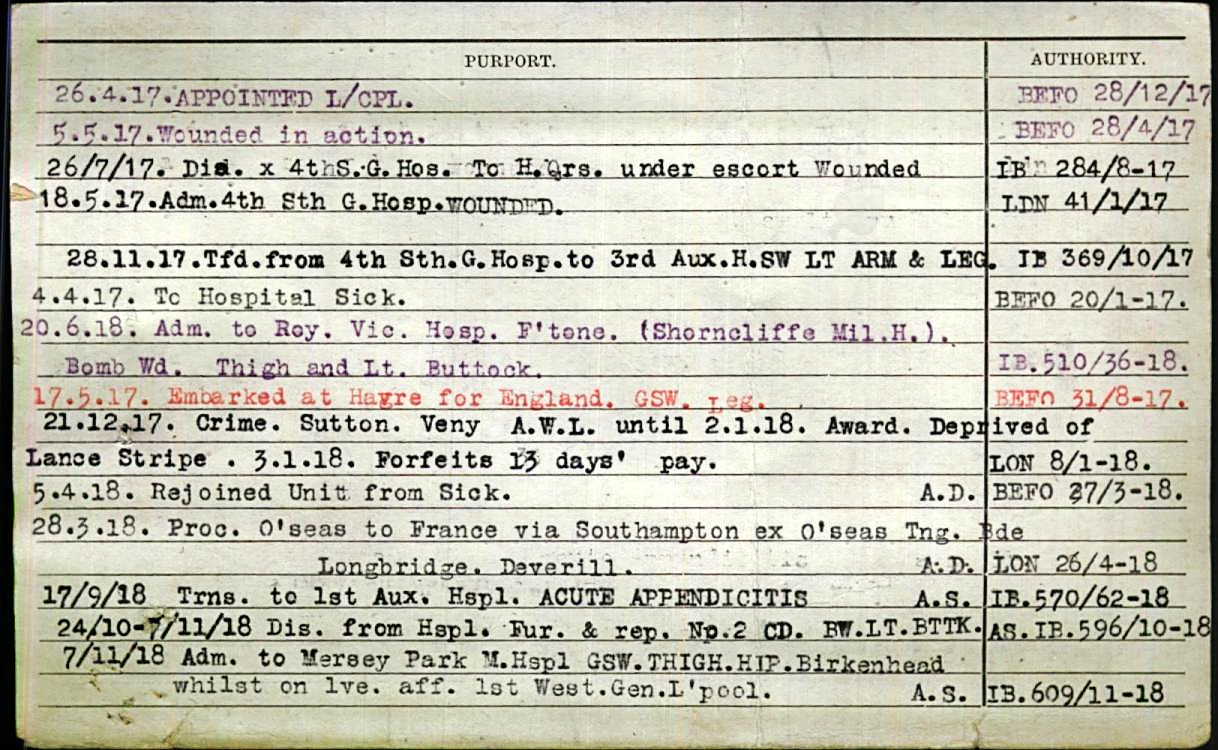 PURPORT. AUTHORITY.
26.4.17.APPOINTED L/CPL. BEFO 28/12/17
5.5.17.Wounded in action. BEFO 28/4/17
26/7/17. Dis. x 4thS.G.Hos. To H.Qrs. under escort Wounded IB 284/8-17
18.5.17.Adm.4th Sth G.Hosp.WOUNDED. LDN 41/1/17
28.11.17.Tfd.from 4th Sth.G.Hosp.to 3rd Aux.H.SW LT ARM & LEG. IB 369/10/17
4.4.17. To Hospital Sick. BEFO 20/1-17.
20.6.18. Adm. to Roy. Vic. Hosp. F'tone. (Shorncliffe Mil.H.).
Bomb Wd. Thigh and Lt. Buttock. IB.510/36-18.
17.5.17. Embarked at Havre for England. GSW. Leg. BEFO 31/8-17.
21.12.17. Crime. Sutton. Veny A.W.L. until 2.1.18. Award. Deprived of
Lance Stripe . 3.1.18. Forfeits 13 days' pay. LON 8/1-18.
5.4.18. Rejoined Unit from Sick. A.D. BEFO 27/3-18.
28.3.18. Proc. O'seas to France via Southampton ex O'seas Tng. Bde
Longbridge. Deverill. A.D. LON 26/4-18
17/9/18 Trns. to 1st Aux. Hspl. ACUTE APPENDICITIS A.S. IB.570/62-18
24/10-7/11/18 Dis. from Hspl. Fur. & rep. No.2 CD. BW.LT.BTTK. AS.IB.596/10-18
7/11/18 Adm. to Mersey Park M.Hspl GSW.THIGH.HIP.Birkenhead
whilst on lve. aff. 1st West.Gen.L'pool. A.S. IB.609/11-18